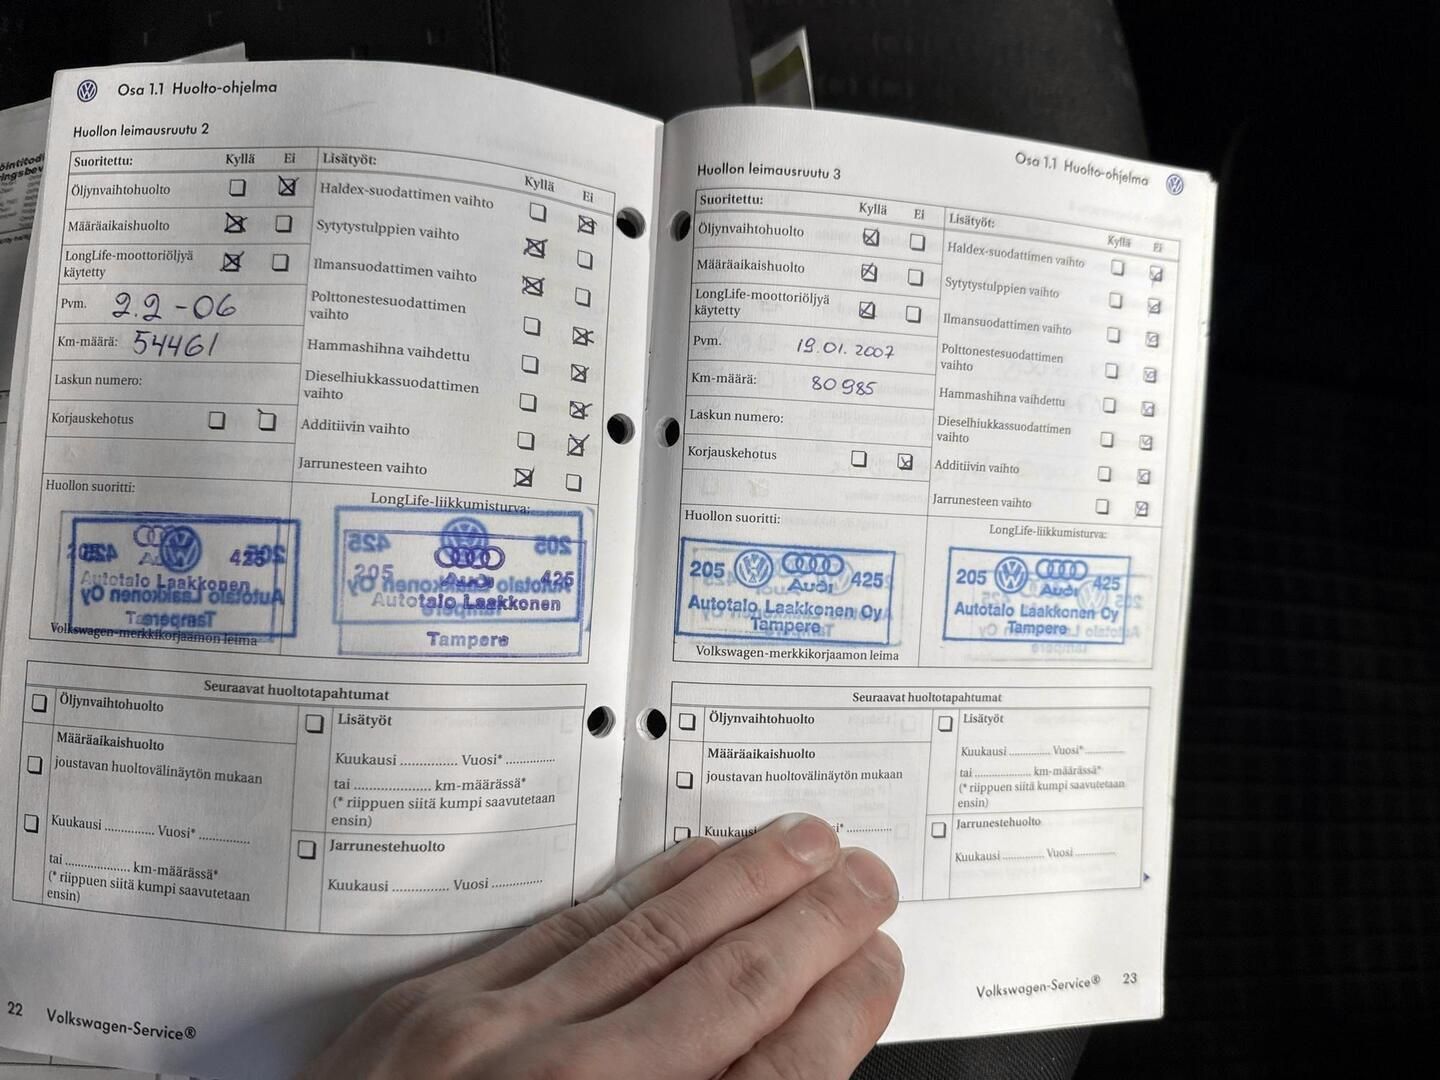 Osa 1.1 Huolto-ohjelma
Huollon leimausruutu 2
Suoritettu: Kyllä Ei
Öljynvaihtohuolto
Määräaikaishuolto
LongLife-moottoriöljyä
käytetty
Pvm. 2.2 - 06
Km-määrä: 54461
Laskun numero:
Korjauskehotus
Huollon suoritti:
425
Autotalo Laakkonen
Tampere
Volkswagen-merkkikorjaamon leima
Lisätyöt: Kyllä Ei
Haldex-suodattimen vaihto
Sytytystulppien vaihto
Ilmansuodattimen vaihto
Polttonestesuodattimen
vaihto
Hammashihna vaihdettu
Dieselhiukkassuodattimen
vaihto
Additiivin vaihto
Jarrunesteen vaihto
LongLife-liikkumisturva:
205 425
Audi
Autotalo Laakkonen
Tampere
Seuraavat huoltotapahtumat
Öljynvaihtohuolto
Määräaikaishuolto
joustavan huoltovälinäytön mukaan
Kuukausi .............. Vuosi* ..............
tai .................. km-määrässä*
(* riippuen siitä kumpi saavutetaan
ensin)
Lisätyöt
Kuukausi .............. Vuosi* ..............
tai ...................... km-määrässä*
(* riippuen siitä kumpi saavutetaan
ensin)
Jarrunestehuolto
Kuukausi .............. Vuosi ..............
22 Volkswagen-Service®
Osa 1.1 Huolto-ohjelma
Huollon leimausruutu 3
Suoritettu: Kyllä Ei
Öljynvaihtohuolto
Määräaikaishuolto
LongLife-moottoriöljyä
käytetty
Pvm. 19.01.2007
Km-määrä: 80985
Laskun numero:
Korjauskehotus
Huollon suoritti:
205 425
Audi
Autotalo Laakkonen Oy
Tampere
Volkswagen-merkkikorjaamon leima
Lisätyöt: Kyllä Ei
Haldex-suodattimen vaihto
Sytytystulppien vaihto
Ilmansuodattimen vaihto
Polttonestesuodattimen
vaihto
Hammashihna vaihdettu
Dieselhiukkassuodattimen
vaihto
Additiivin vaihto
Jarrunesteen vaihto
LongLife-liikkumisturva:
205 425
Audi
Autotalo Laakkonen Oy
Tampere
Seuraavat huoltotapahtumat
Öljynvaihtohuolto
Määräaikaishuolto
joustavan huoltovälinäytön mukaan
Kuukausi
Lisätyöt
Kuukausi .............. Vuosi* ..............
tai .................... km-määrässä*
(* riippuen siitä kumpi saavutetaan
ensin)
Jarrunestehuolto
Kuukausi .............. Vuosi ..............
Volkswagen-Service® 23